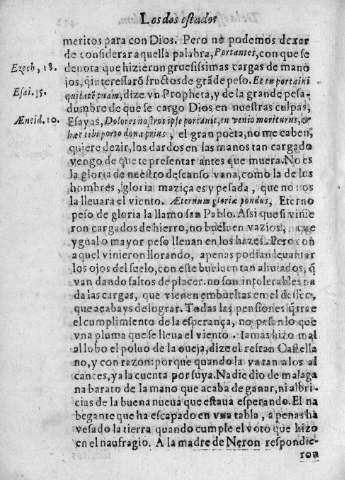 Los dos estados
meritos para con Dios. Pero no podemos dexar
de considerar aquella palabra, Portantes, con que se
denota que hizieron gruesissimas cargas de mano
Ezech, 18.
jos, q̃ interessarõ fructos de grãde peso. Et
Esai. 15.
dize vn Propheta, y de la grande pesa-
dumbre de que se cargo Dios en nuestras culpas,
Æneid. 10.
Esayas, Dolores nostros ipse portauit, venio moriturus, et
hæc tibi porto dona prius, el gran poeta, no me caben,
quiere dezir, los dardos en las manos tan cargado
vengo de que te presentar antes que muera. No es
la gloria de nuestro descanso vana, como la de los
hombres, gloria maziça es y pesada, que no nos
la lleuara el viento. Æternum gloriæ pondus, Eterno
peso de gloria la llamo san Pablo. Assi que si vinie
ron cargados de hierro, no bueluen vazios, que
ygual o mayor peso lleuan en los hazes. Pero con
aquel vinieron llorando, apenas podian leuantar
los ojos del suelo, con este bueluen tan ahuados, q̃
van dando saltos de placer. no son intolerables
da las cargas, que vienen embueltas en el
que acabays de lograr. Todas las pensiones
el cumplimiento de la esperança, no pesan lo que
vna pluma que se lleua el viento. Iamas hizo mal
al lobo el poluo de la oveja, dize el refran Castella
no, y con razon: porque quando la ya tan a los al
cances, ya la cuenta por suya. Nadie dio de mala gana
barato de la mano que acaba de ganar, ni albri-
cias de la buena nueua que estaua esperando. El na
uegante que ha escapado en vna tabla, apenas ha
vesado la tierra quando cumple el voto que hizo
en el naufragio. A la madre de Neron respondie-
ron